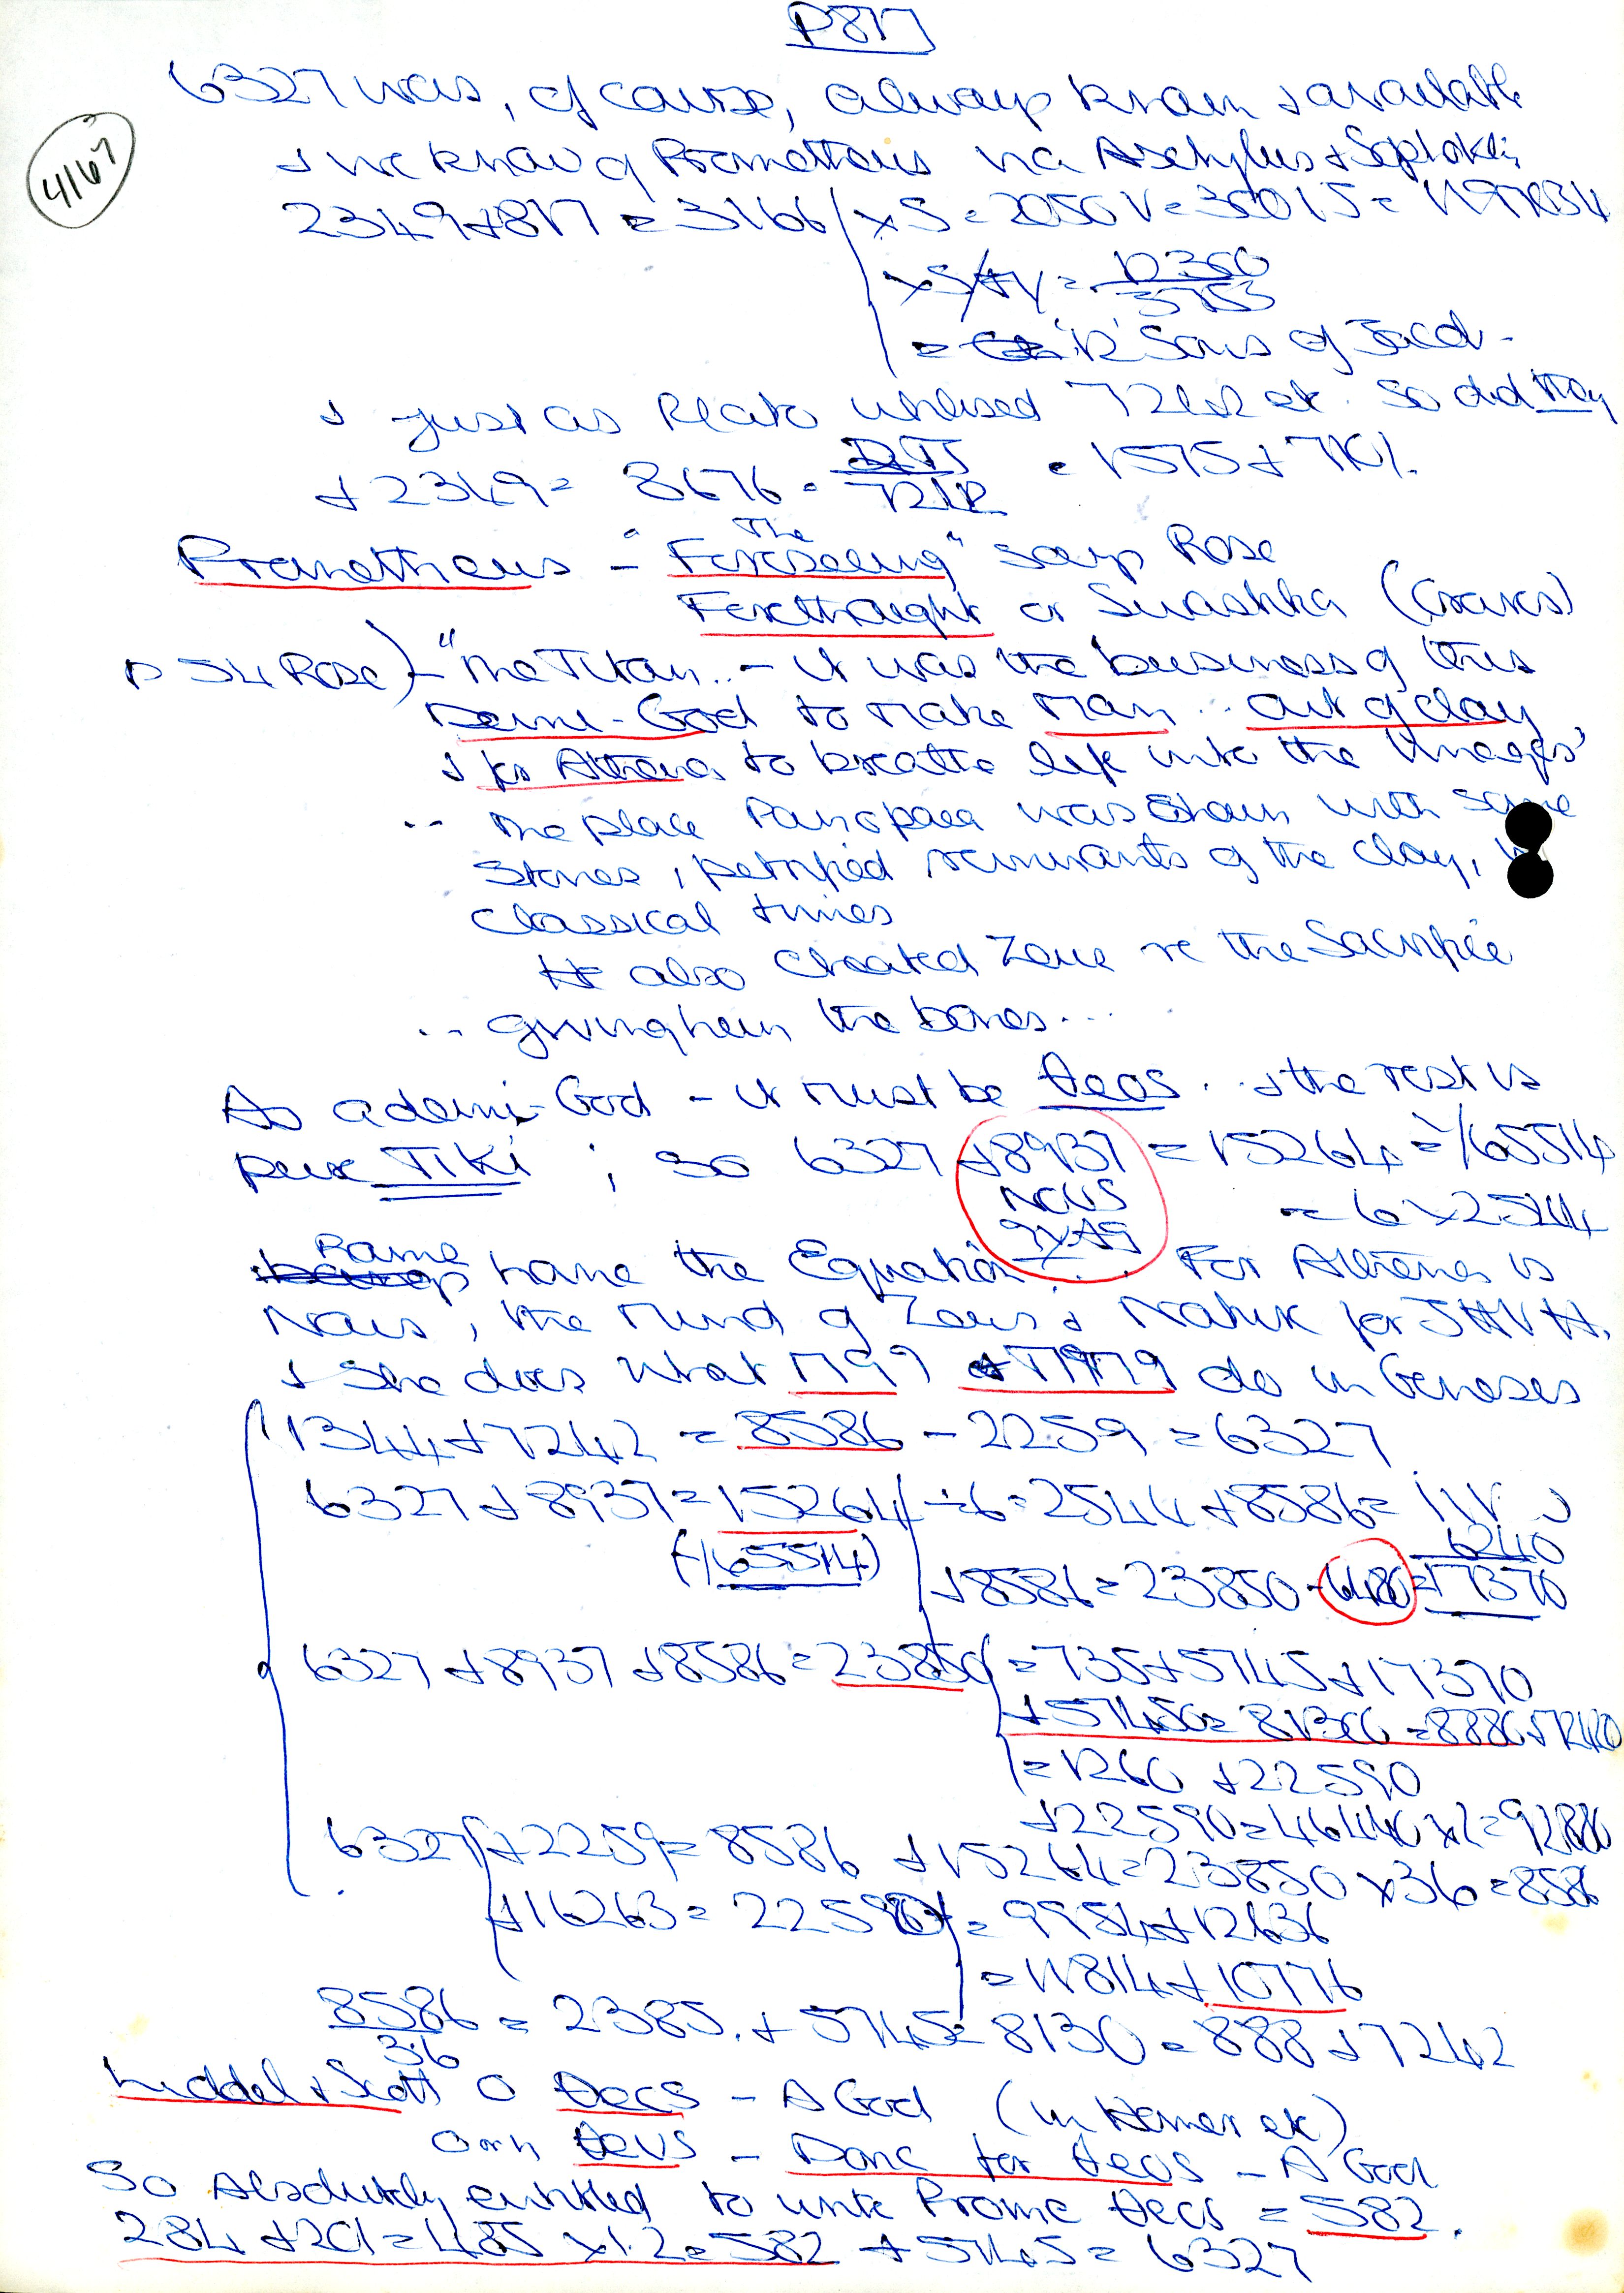 P817
4167
6327 was, of course, always known + available
+ we know of Prometheus via Aeschylus + Sophokles
2349 + 817 = 3166 / x S = 2050 V = 36015 =
x S/4V = 12360
3753
= 12 Sons of Jacob.
+ just as Plato utilised 7212 et. so did they
+ 2349 = 8676 = 7212 = 1575 + 7101.
Prometheus - "The Foreseeing" says Rose
Forethought or Swastika (Graves)
p 54 Rose) - "The Titan.. - it was the business of this
Demi-God to make Man .. out of clay
+ for Athena to breathe life into the images'
.. The place Panopaea was shown with some
Stones, petrified remnants of the clay, in
Classical times
He also cheated Zeus re the Sacrifice
.. giving him the bones...
As a demi-God - it must be θeos .. + the rest is
pure TIKI ; so 6327 + 8937 = 15264 = /65514
NOUS
= 6 x 2544
Rome have the Equation .. For Athene is
Nous, the Mind of Zeus + Nature for JHVH.
+ She does what do in Geneses
1344 + 7242 = 8586 - 2259 = 6327
6327 + 8937 = 15264 / ÷ 6 = 2544 + 8586 =
6240
(-/65514)
+ 8586 = 23850 - 6480 = 17370
6327 + 8937 + 8586 = 23850 / = 735 + 5745 + 17370
+ 57450 = 81300 = 8880 + 72420
= 1260 + 22590
+ 22590 = 46440 x 2 = 92880
6327 / + 2259 = 8586 + 15264 = 23850 x 36 = 8586
+ 16263 = 22590 / = 9954 + 12636
= 11814 + 10776
8586 = 2385. + 5745 = 8130 = 888 + 7242
3.6
Liddel + Scott O θeos - A God (in Homer etc)
θeus - Doric for θeos - A God
So Absolutely entitled to write Prome θeos = 582.
284 + 201 = 485 x 1.2 = 582 + 5745 = 6327